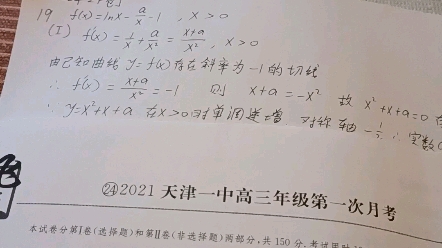 19 f(x)=lnx-a/x-1 , x>0
(I) f'(x)=1/x+a/x²=(x+a)/x² , x>0
由已知曲线 y=f(x)存在斜率为-1的切线
∴ f'(x)=(x+a)/x²=-1 则 x+a=-x² 故 x²+x+a=0 在
∵ y=x²+x+a 在x>0时单调递增 对称轴-1/2 ∴实数
㉔2021 天津一中高三年级第一次月考
本试卷分第Ⅰ卷(选择题)和第Ⅱ卷(非选择题)两部分,共 150 分,考试用时